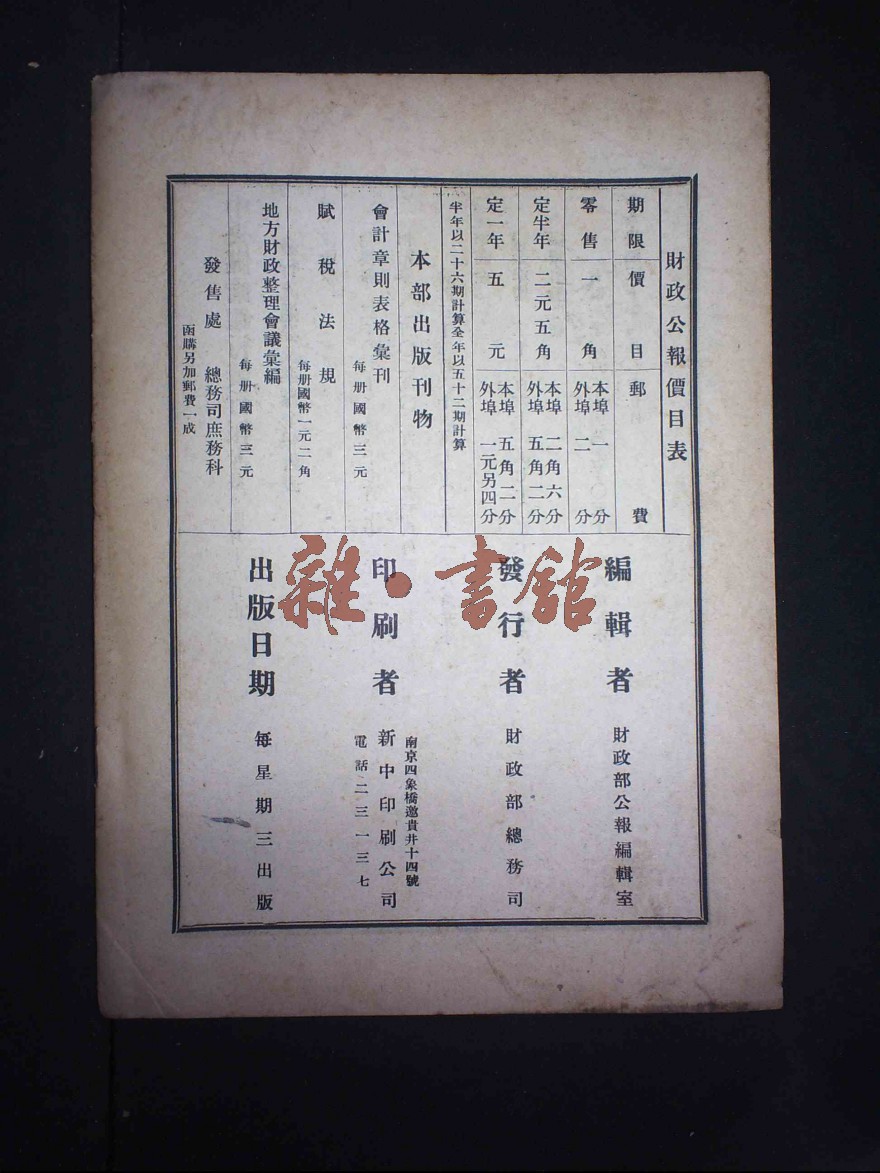 財政公報價目表
期限 價目 郵費
零售 一角 本埠一分 外埠二分
定半年 二元五角 本埠二角六分 外埠五角二分
定一年 五元 本埠五角二分 外埠一元另四分
半年以二十六期計算全年以五十二期計算
本部出版刊物
會計章則表格彙刊
每册國幣三元
賦稅法規
每册國幣一元二角
地方財政整理會議彙編
每册國幣三元
發售處 總務司庶務科
函購另加郵費一成
編輯者 財政部公報編輯室
發行者 財政部總務司
南京四象橋邀貴井十四號
印刷者 新中印刷公司
電話二三一三七
出版日期 每星期三出版
雜·書館